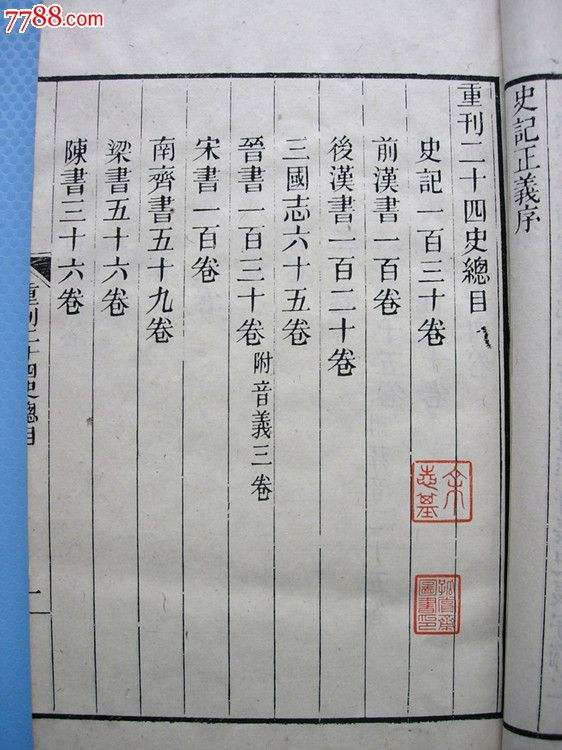 7788.com
史記正義序
重刊二十四史總目
史記一百三十卷
前漢書一百卷
後漢書一百二十卷
三國志六十五卷
晉書一百三十卷附音義三卷
宋書一百卷
南齊書五十九卷
梁書五十六卷
陳書三十六卷
重刊二十四史總目
一
余志基
圖書印